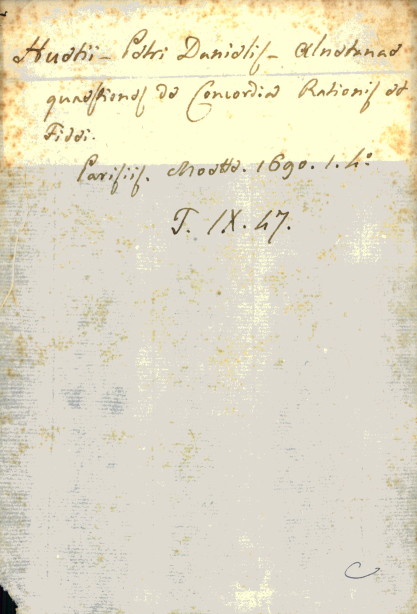 Huetii - Petri Danielis - Alnetanae
quaestiones de Concordia Rationis et
Fidei.
Parisiis. Moette. 1690. 1. 4º
T. IX. 47.